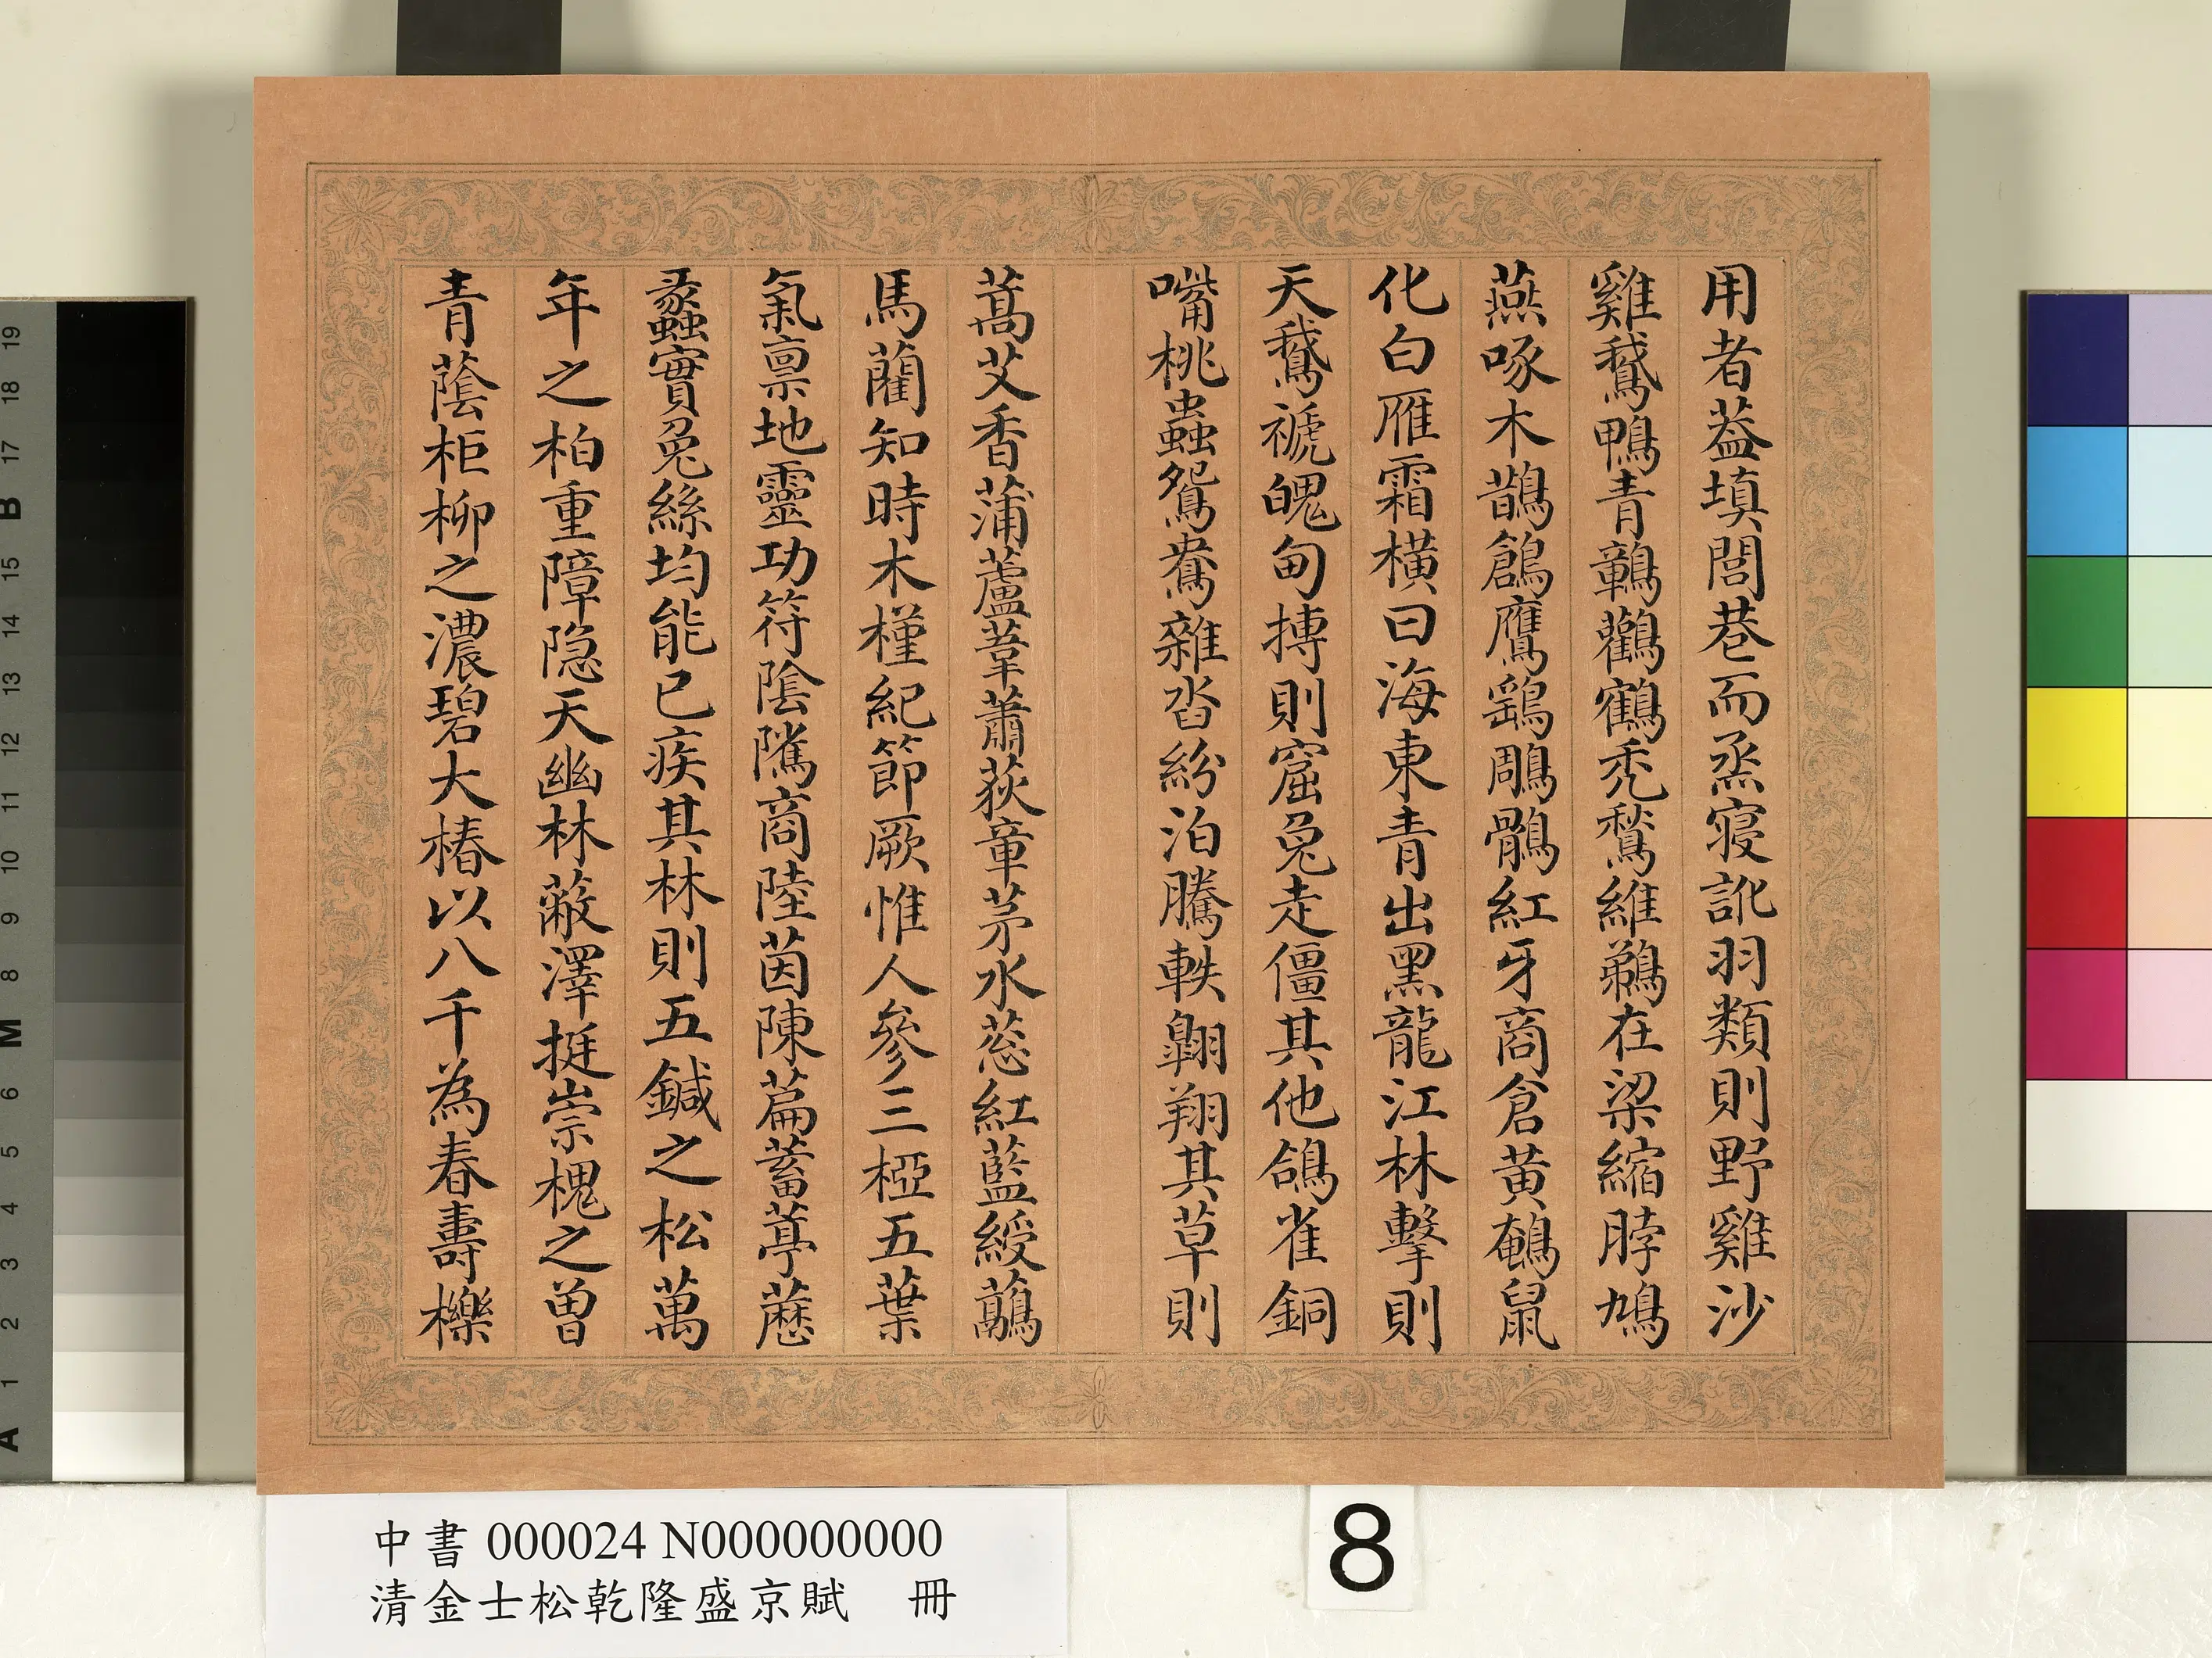 用者葢填閭巷而烝寢訛羽類則野雞沙
雞鵝鴨青鶄鸛鶴禿鶖維鵜在梁縮脖鳩
燕啄木鵲鶬鷹鷂鵰鶻紅牙商倉黃鵪鼠
化白雁霜橫曰海東青出黑龍江林擊則
天鵝褫魄甸摶則窟兔走僵其他鴿雀銅
嘴桃蟲鴛鴦雜沓紛泊騰軼翱翔其草則
蒿艾香蒲蘆葦蕭荻章茅水葱紅藍綬虉
馬藺知時木槿紀節厥惟人參三椏五葉
氣稟地靈功符陰隲商陸茵陳萹蓄葶藶
蠡實兔絲均能已疾其林則五鍼之松萬
年之柏重障隐天幽林蔽澤挺崇槐之曽
青蔭柜柳之濃碧大椿以八千為春壽櫟
中書 000024 N000000000
清金士松乾隆盛京賦 冊
8
19
18
17
B
15
14
13
12
11
10
9
8
M
6
5
4
3
2
1
A